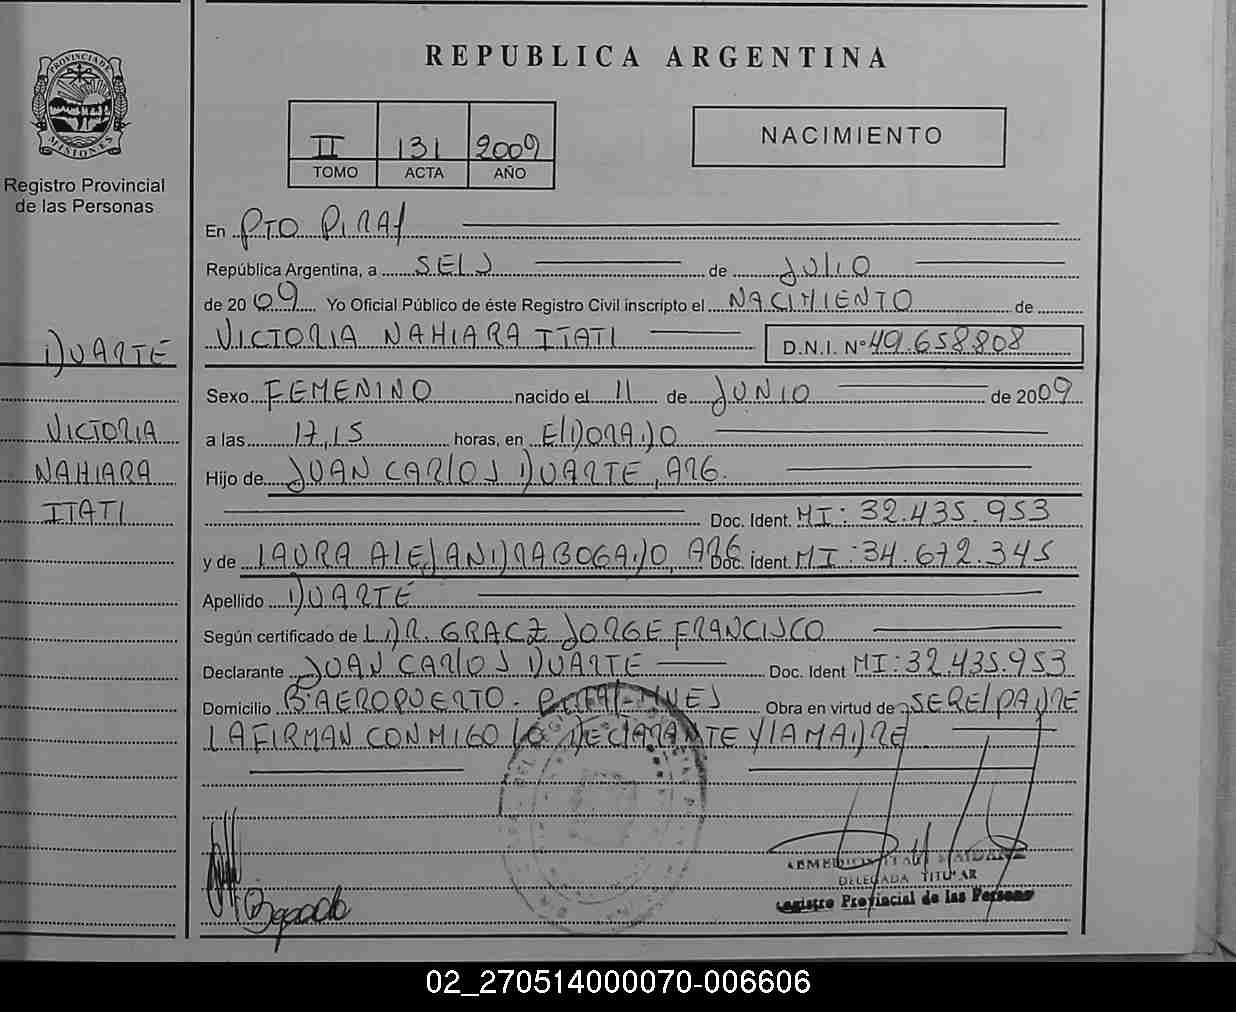 PROVINCIA DE
MISIONES
Registro Provincial
de las Personas
DUARTE
VICTORIA
NAHIARA
ITATI
REPUBLICA ARGENTINA
II 131 2009
TOMO ACTA AÑO
NACIMIENTO
En PTO PIRAY
República Argentina, a SEIS de JULIO
de 20 09 Yo Oficial Público de éste Registro Civil inscripto el NACIMIENTO de
VICTORIA NAHIARA ITATI D.N.I. Nº 49.658.808
Sexo FEMENINO nacido el 11 de JUNIO de 2009
a las 17,15 horas, en ELDORADO
Hijo de JUAN CARLOS DUARTE, ARG.
Doc. Ident. MI: 32.435.953
y de LAURA ALEJANDRA BOGADO, ARG Doc. Ident. MI: 34.672.345
Apellido DUARTE
Según certificado de L DR. GRACZ JORGE FRANCISCO
Declarante JUAN CARLOS DUARTE Doc. Ident MI: 32.435.953
Domicilio Bº AEROPUERTO. Obra en virtud de SER EL PADRE
LA FIRMAN CONMIGO LO DECLARANTE Y LA MADRE
Bogado
DELEGADA TITULAR
Registro Provincial de las Personas
02_270514000070-006606